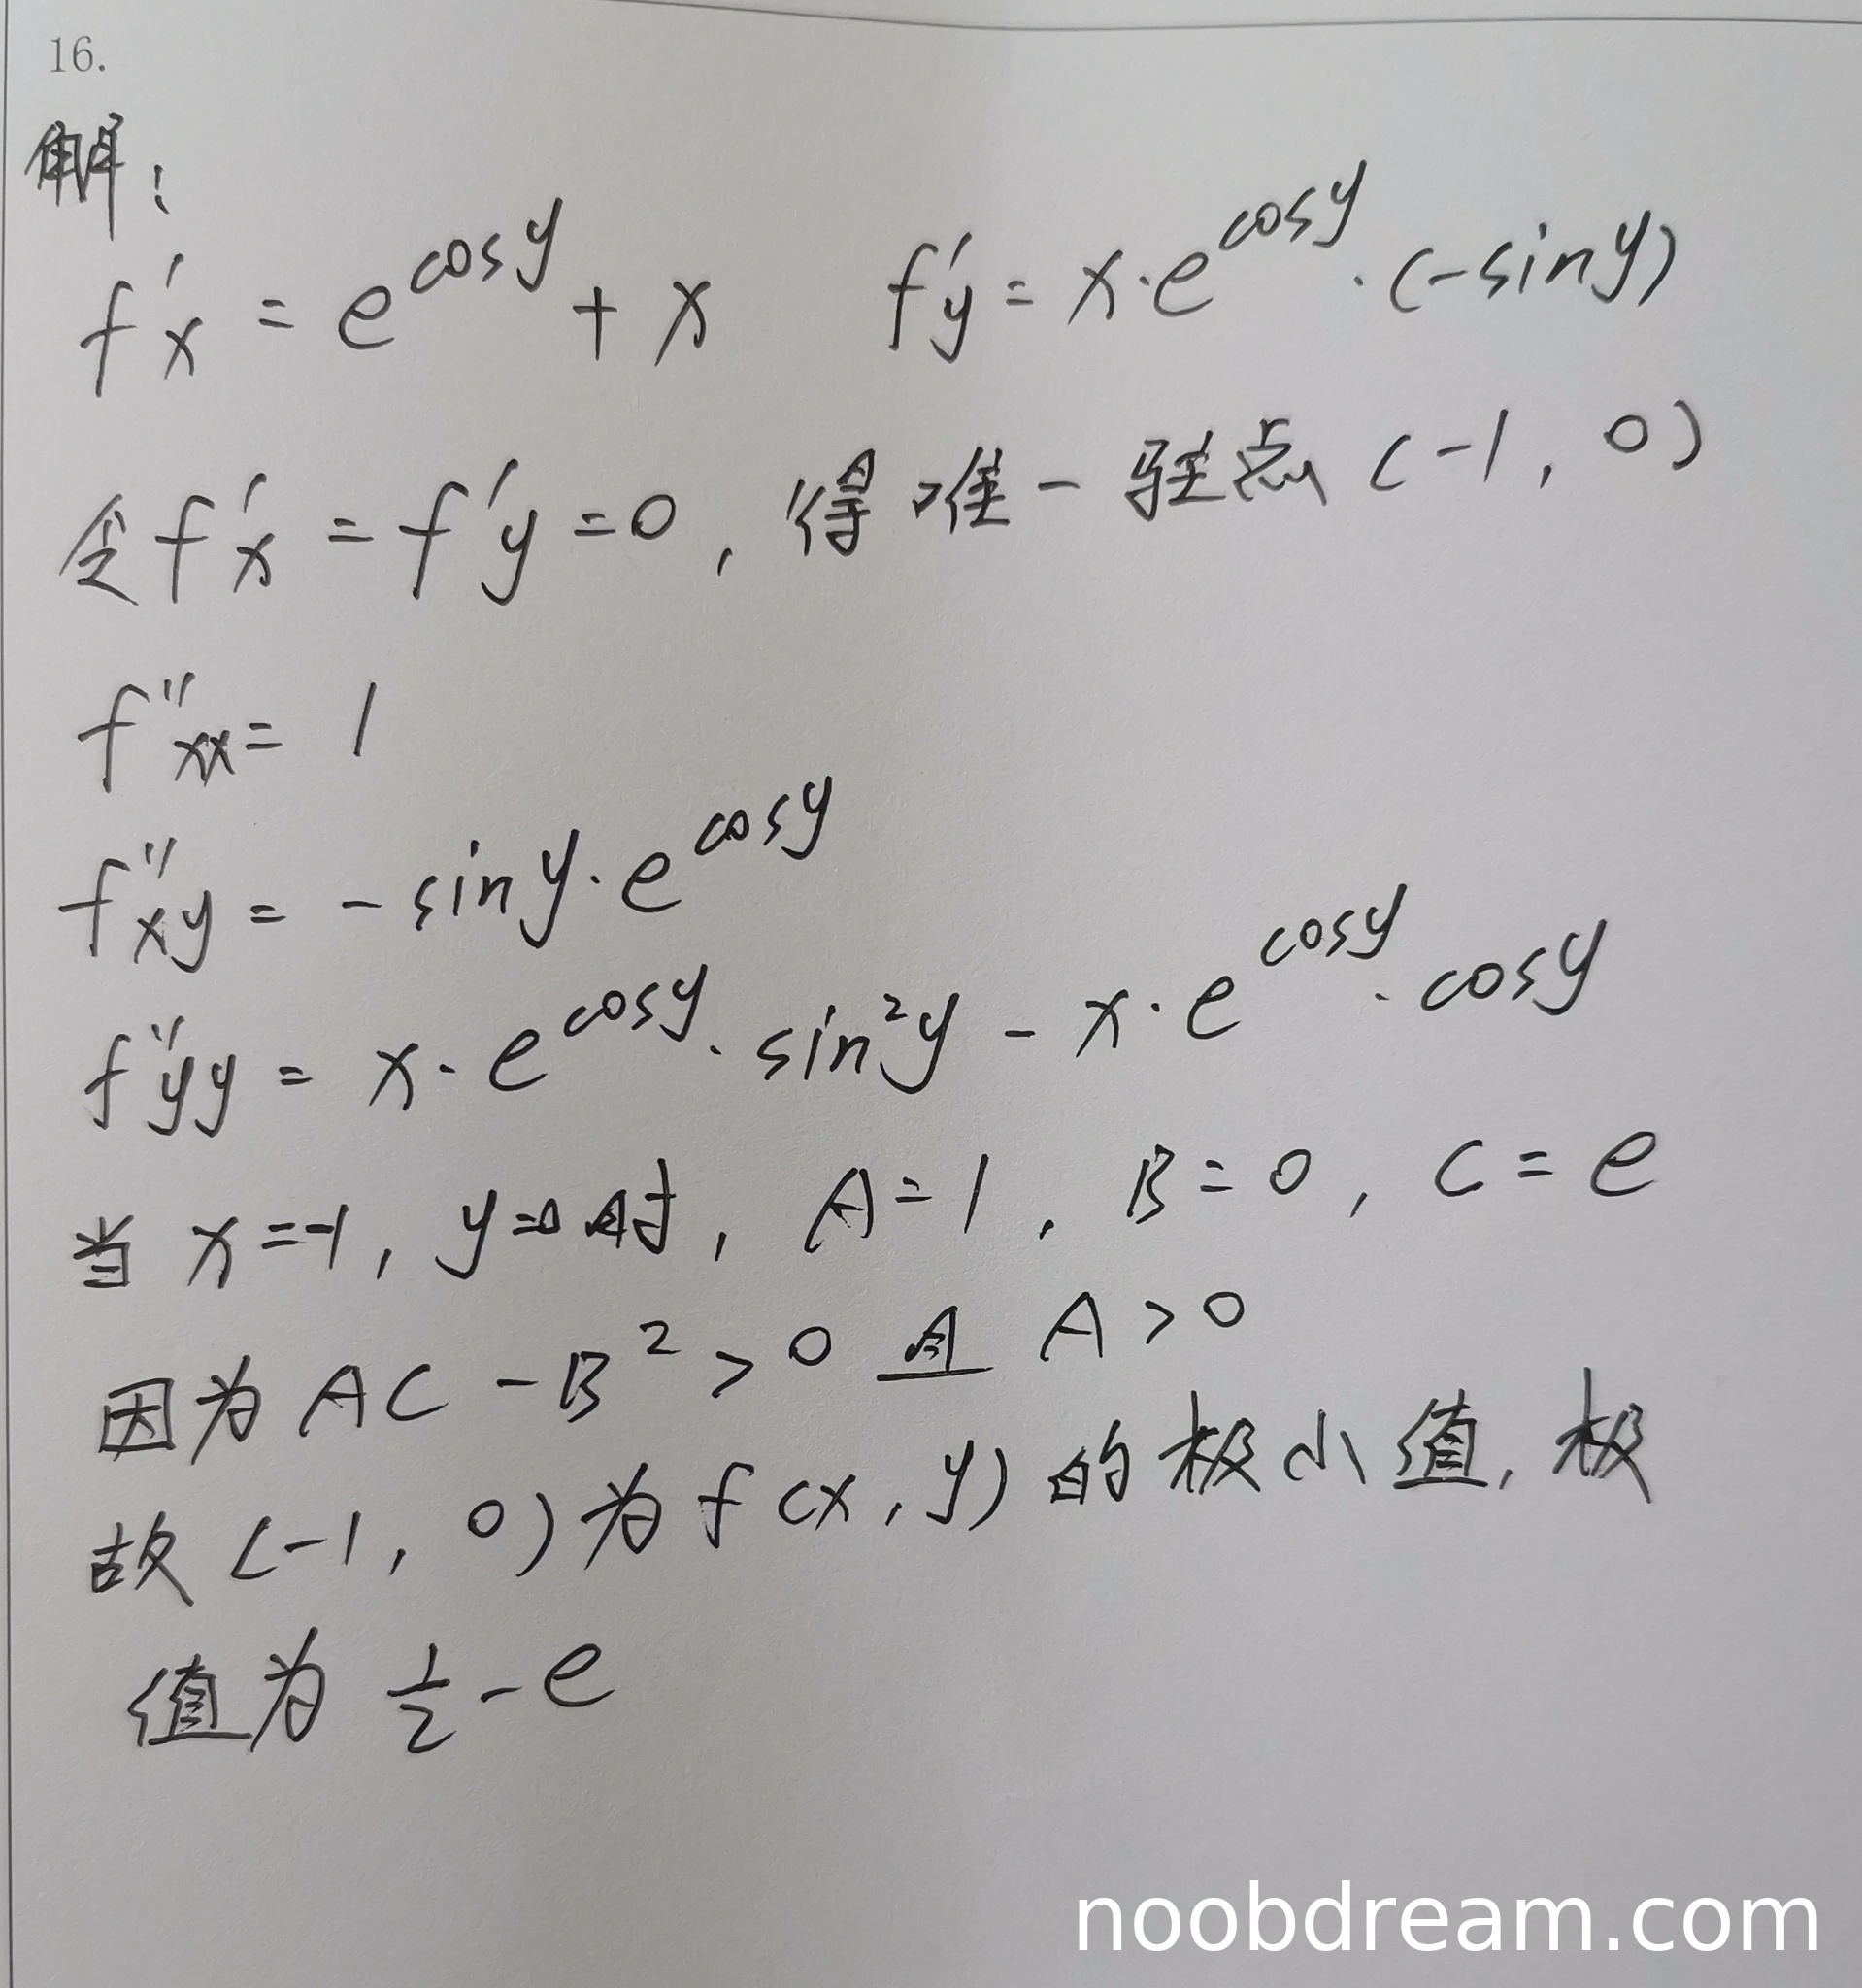 16.
解:
f'x = e^cosy + x    f'y = x·e^cosy·(-siny)
令f'x = f'y = 0, 得唯一驻点(-1, 0)
f''xx = 1
f''xy = -siny·e^cosy
f''yy = x·e^cosy·sin²y - x·e^cosy·cosy
当x=-1, y=0时, A=1, B=0, C=e
因为AC-B²>0且A>0
故(-1, 0)为f(x,y)的极小值, 极
值为 1/2 - e
noobdream.com